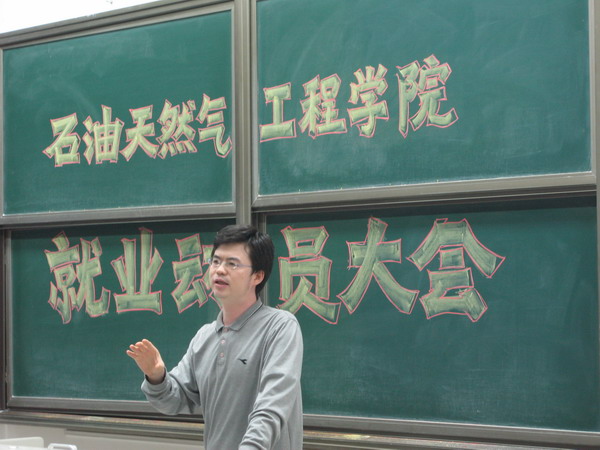 石油天然气工程学院
就业动员大会